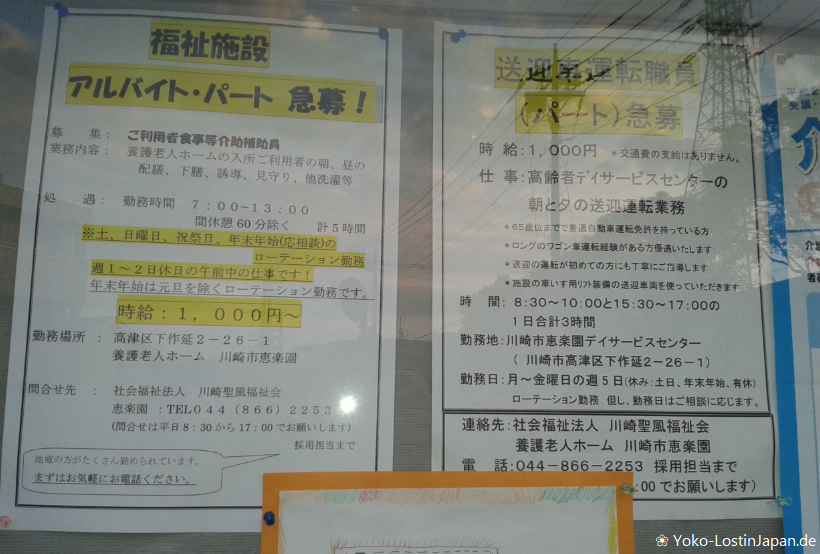 福祉施設
アルバイト・パート 急募！
募　集： ご利用者食事等介助補助員
業務内容： 養護老人ホームの入所ご利用者の朝、昼の
配膳、下膳、誘導、見守り、他洗濯等
処　遇： 勤務時間　７：００~１３：００
間休憩60分除く　計５時間
※土、日曜日、祝祭日、年末年始(応相談)の
ローテーション勤務
週１~２日休日の午前中の仕事です！
年末年始は元旦を除くローテーション勤務です。
時給：１，０００円~
勤務場所： 高津区下作延２－２６－１
養護老人ホーム　川崎市恵楽園
問合せ先： 社会福祉法人　川崎聖風福祉会
恵楽園：TEL０４４（８６６）２２５３
(問合せは平日８:３０から１７:００でお願いします)
採用担当まで
地域の方がたくさん勤められています。
まずはお気軽にお電話ください。
送迎車運転職員
（パート）急募
時 給：１，０００円 ＊交通費の支給はありません。
仕 事：高齢者デイサービスセンターの
朝と夕の送迎運転業務
＊65歳位までで普通自動車運転免許を持っている方
＊ロングのワゴン車運転経験がある方優遇いたします
＊送迎の運転が初めての方にも丁寧にご指導します
＊施設の車いす用リフト装備の送迎車両を使っていただきます
時　間： 8:30~10:00と15:30~17:00の
１日合計3時間
勤務地：川崎市恵楽園デイサービスセンター
（ 川崎市高津区下作延２－２６－１）
勤務日：月~金曜日の週５日(休み：土日、年末年始、有休)
ローテーション勤務 但し、勤務日はご相談に応じます。
連絡先：社会福祉法人 川崎聖風福祉会
養護老人ホーム 川崎市恵楽園
電　話：044-866-2253 採用担当まで
:00でお願いします）
平成2
受講・
介
❀ Yoko-LostinJapan.de